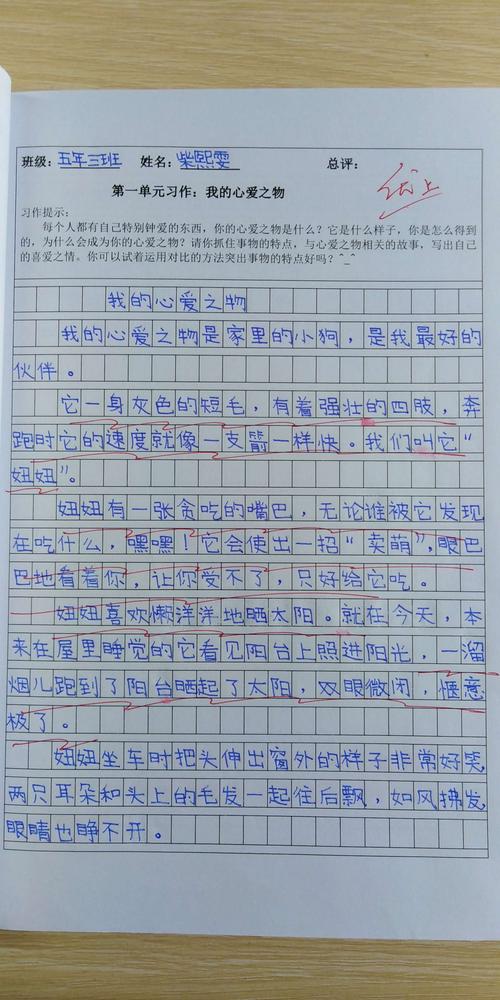 班级：五年三班 姓名：柴熙雯 总评：优上
第一单元习作：我的心爱之物
习作提示：
每个人都有自己特别钟爱的东西，你的心爱之物是什么？它是什么样子，你是怎么得到
的，为什么会成为你的心爱之物？请你抓住事物的特点，与心爱之物相关的故事，写出自己
的喜爱之情。你可以试着运用对比的方法突出事物的特点好吗？^_^
我的心爱之物
我的心爱之物是家里的小狗，是我最好的
伙伴。
它一身灰色的短毛，有着强壮的四肢，奔
跑时它的速度就像一支箭一样快。我们叫它“
妞妞”。
妞妞有一张贪吃的嘴巴，无论谁被它发现
在吃什么，嘿嘿！它会使出一招“卖萌”，眼巴
巴地看着你，让你受不了，只好给它吃。
妞妞喜欢懒洋洋地晒太阳。就在今天，本
来在屋里睡觉的它看见阳台上照进阳光，一溜
烟儿跑到了阳台晒起了太阳，双眼微闭，惬意
极了。
妞妞坐车时把头伸出窗外的样子非常好笑，
两只耳朵和头上的毛发一起往后飘，如风拂发，
眼睛也睁不开。